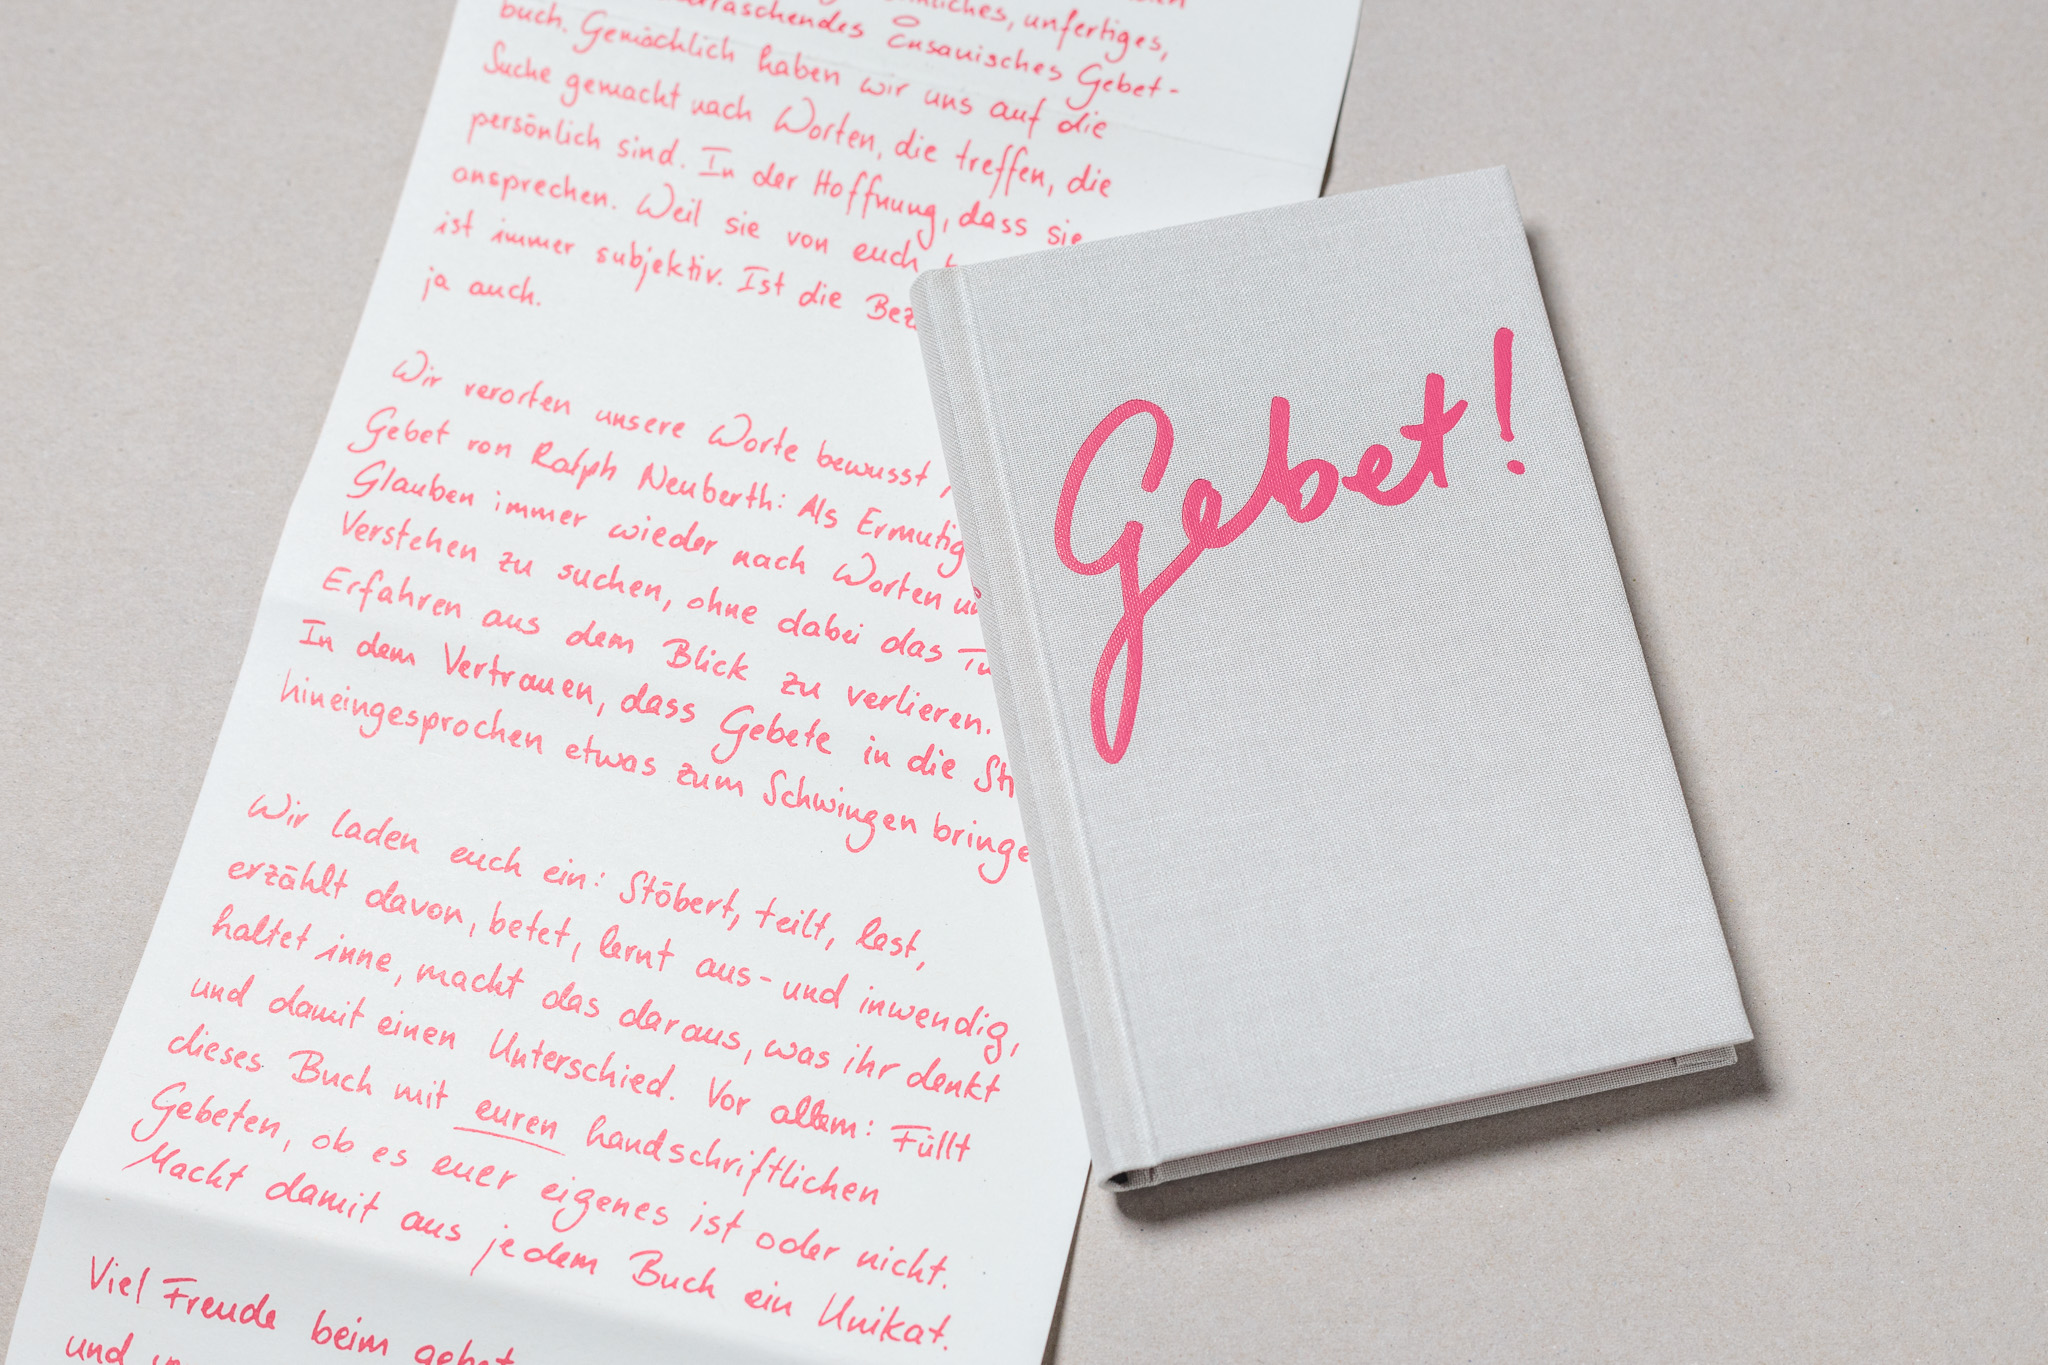 unfertiges,
Ensauisches Gebet-
buch. Gemächlich haben wir uns auf die
Suche gemacht nach Worten, die treffen, die
persönlich sind. In der Hoffnung, dass sie
ansprechen. Weil sie von euch
ist immer subjektiv. Ist die
ja auch.
Wir verorten unsere Worte bewusst
Gebet von Ralph Neuberth: Als
Glauben immer wieder nach Worten
Verstehen zu suchen, ohne dabei das
Erfahren aus dem Blick zu verlieren.
In dem Vertrauen, dass Gebete in die
hineingesprochen etwas zum Schwingen
Wir laden euch ein: Stöbert, teilt, lest,
erzählt davon, betet, lernt aus- und inwendig,
haltet inne, macht das daraus, was ihr denkt
und damit einen Unterschied. Vor allem: Füllt
dieses Buch mit euren handschriftlichen
Gebeten, ob es euer eigenes ist oder nicht.
Macht damit aus jedem Buch ein Unikat.
Viel Freude beim
und
Gebet!